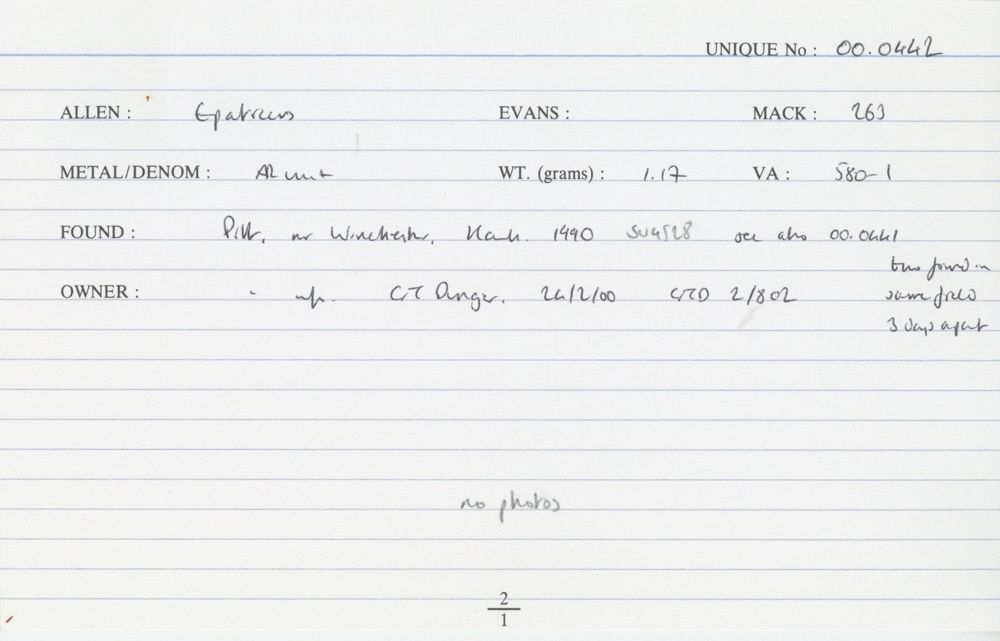 UNIQUE No : 00.0442
ALLEN : Epaticcus EVANS : MACK : 263
METAL/DENOM : AR unit WT. (grams) : 1.17 VA : 580-1
FOUND : Pitt, nr Winchester, Hants. 1990 SU4528 see also 00.0441
two found in
OWNER : - inf. CJ Danger. 24/2/00 2/802 same field
3 days apart
no photos
2
1